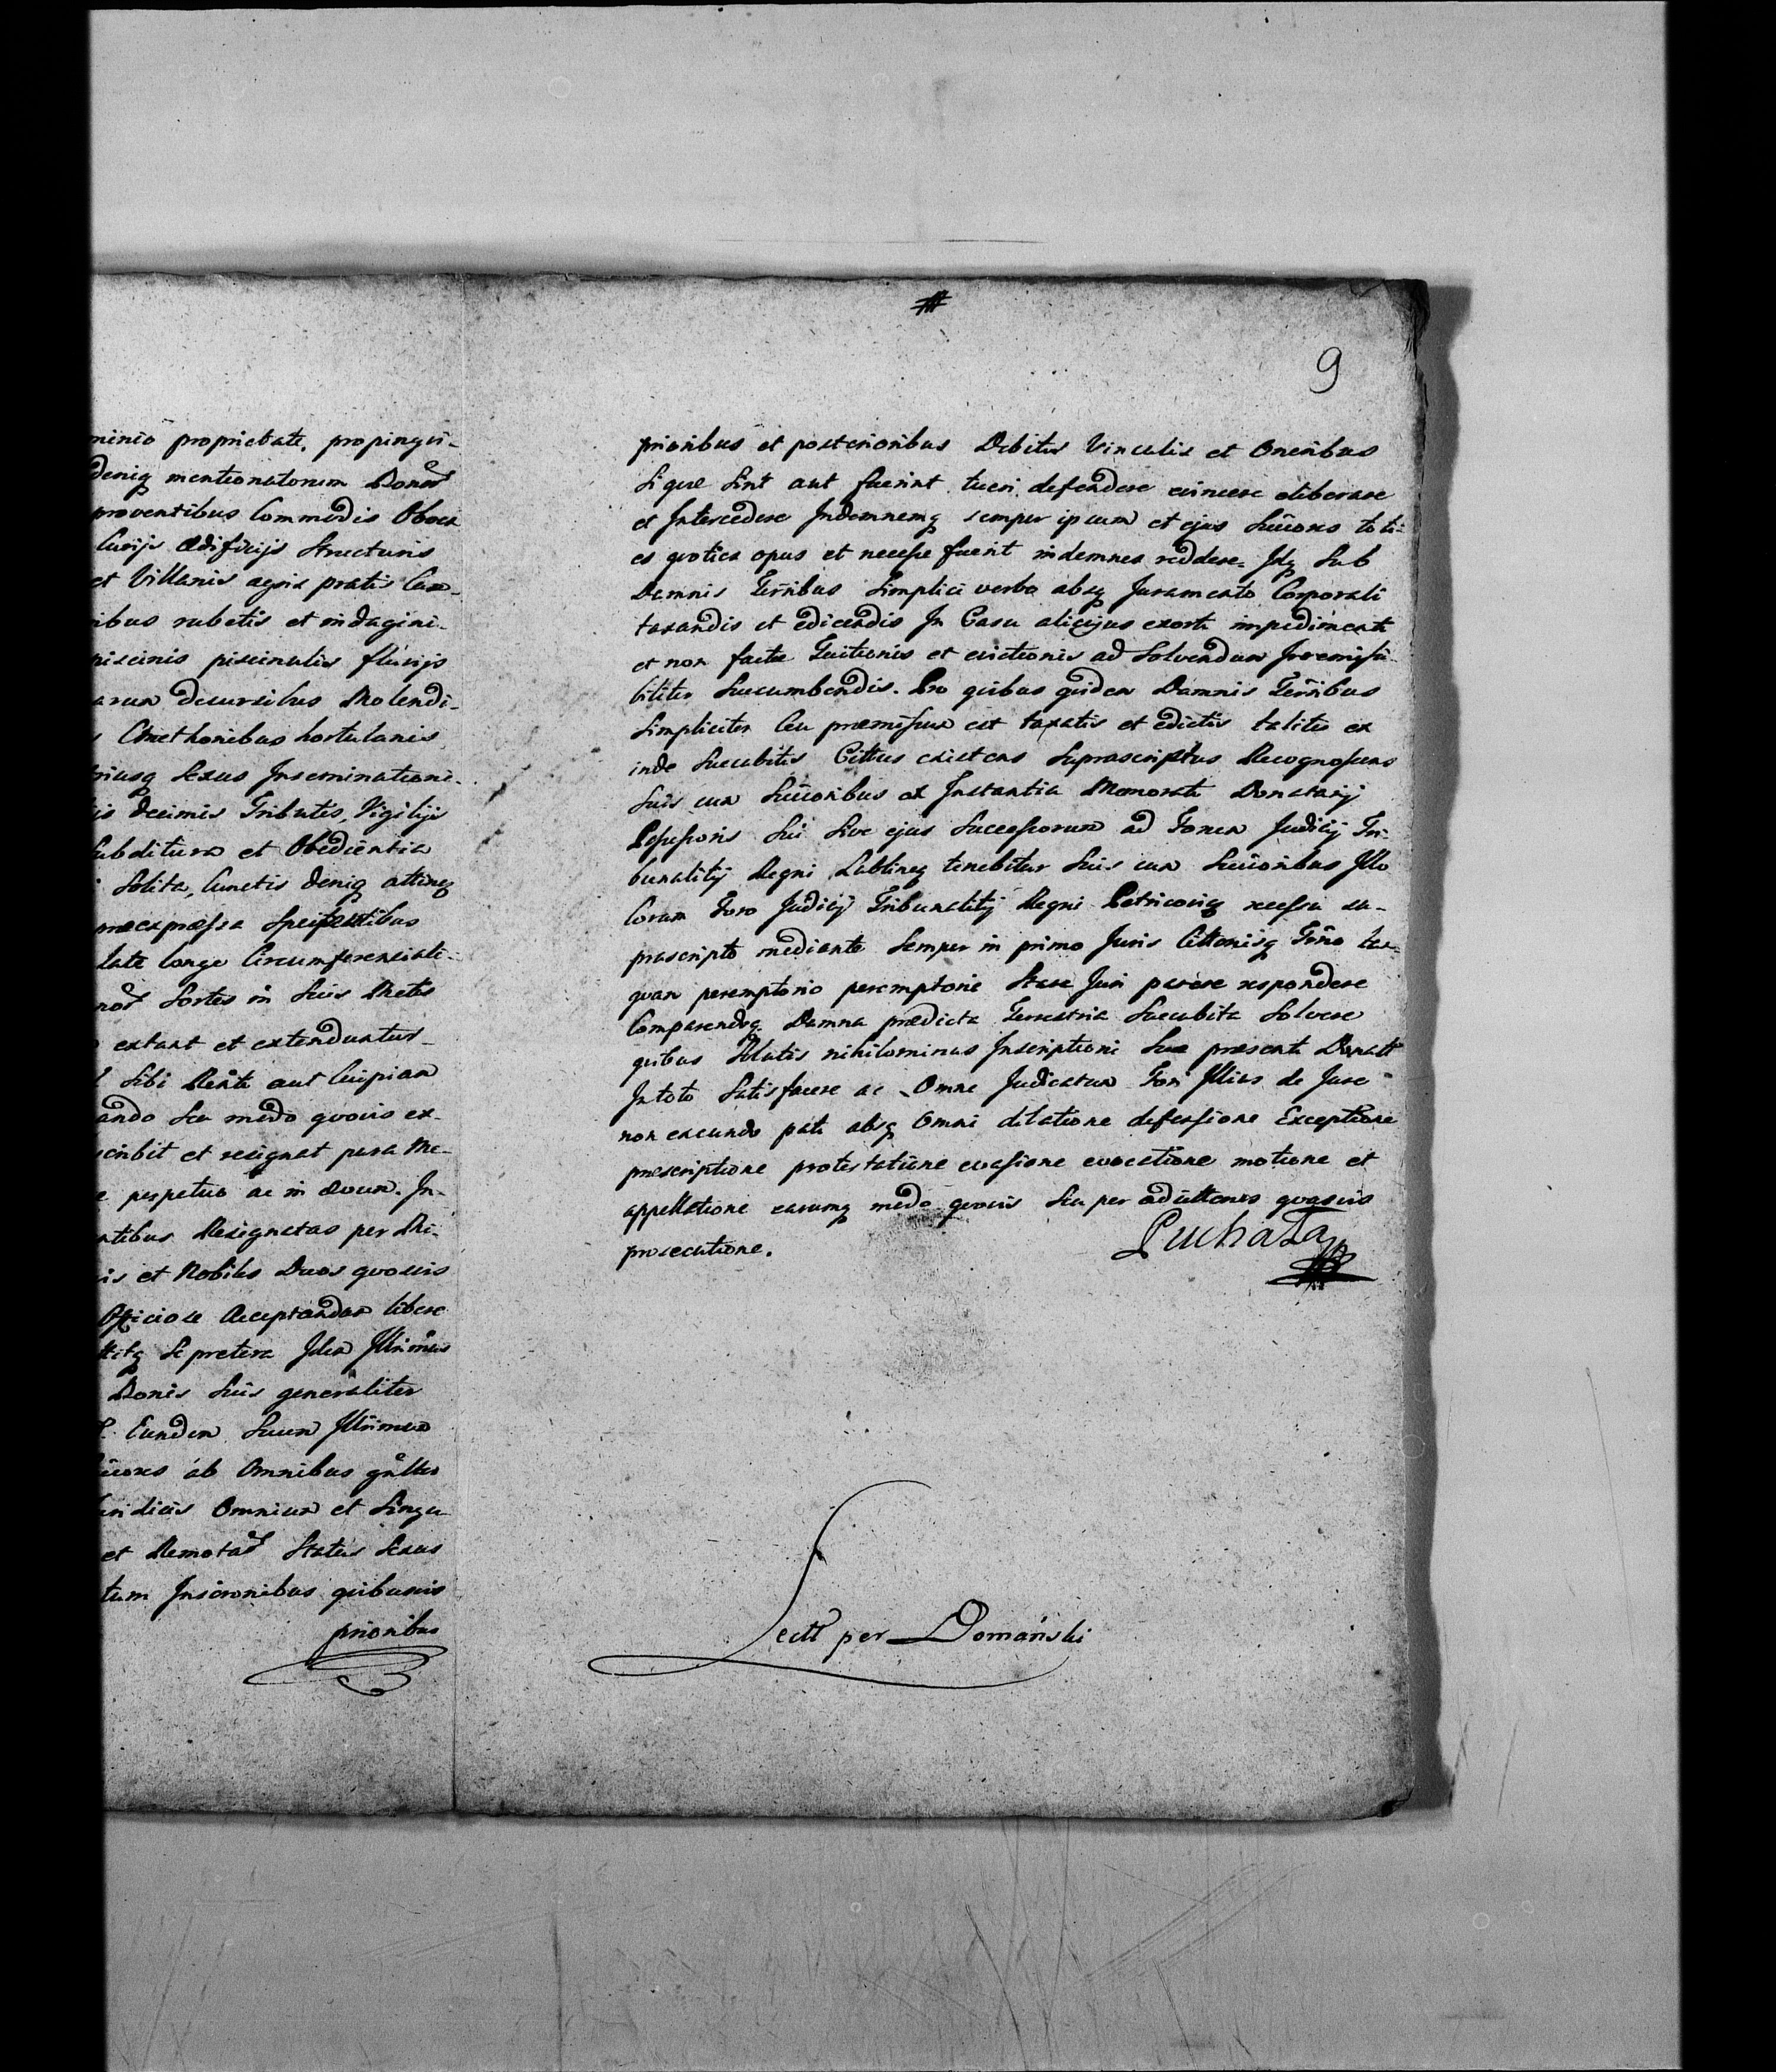 minio proprietate, propinqui-
deniq mentionatorum Bonor
proventibus Commodis Obven
Curijs Ædificijs Structuris
et Villanis agris pratis Cam-
ibus rubetis et indagini-
piscinis piscinulis fluvijs
arum decursibus Molendi-
Cmethonibus hortulanis
triusq Sexus Inseminationi-
is decimis Tributis, Vigilijs
Subditura et Obedientia
Solita, Cunctis deniq attinen
præexpressa Spectantibus
late longe Circumferentiali-
nor Sortes in Suis Metis
extant et extenduntur
Sibi Merito aut Cuipiam
ando Seu modo quovis ex-
scribit et resignat pura Me-
e perpetuo ac in ævum. In-
ntibus Resignatas per Mi-
is et Nobiles Duos quosvis
Officiose Acceptandam libere
ttitq Se pretera Idem Illrimus
Bonis Suis generaliter
Eundem Suum Illrimum
ores ab Omnibus gnlter
uridicis Omnium et Singu-
et Remotar Status Sexus
tum Inscronibus quibusvis
prioribus
9
prioribus et posterioribus Debitis Vinculis et Oneribus
Si quæ Sint aut fuerint tueri, defendere evincere eliberare
et Intercedere Indemnemq semper ipsum et ejus Succores toti-
es quoties opus et necesse fuerit indemnes reddere. Idq Sub
Damnis Terribus Simplici verbo absq Juramento Corporali
taxandis et edicendis In Casu alicujus exorti impedimenti
et non factæ Tuitionis et evictionis ad Solvendum Irremissi-
biliter Succumbendis. Pro quibus quidem Damnis Terribus
Simpliciter Ceu præmissum est taxatis et edictis taliter ex
inde Succubitis Cittus existens Suprascriptus Recognoscens
Suis cum Succoribus ex Instantia Memorati Donatarij
Possessoris Sui Sive ejus Successorum ad Forum Judicij Tri-
bunalitij Regni Lublinen tenebitur Suis cum Succoribus Illo
Coram Foro Judicij Tribunalitij Regni Petricovien recessu su-
prascripto mediante Semper in primo Juris Cittonisq Trmo tan-
quam peremptorio peremptorie Stare Juri parere respondere
Comparendoq Damna prædicta Terrestria Succubita Solvere
quibus Solutis nihilominus Inscriptioni Suæ presenti Donatt
In toto Satisfacere ac Omne Judicatum Fori Illius de Jure
non exeundo pati absq Omni dilatione defensione Exceptione
præscriptione protestatione evasione evocatione motione et
appellatione earumq modo quovis Seu per adcittones quasvis
prosecutione.
Puchała
Lectt per Domański